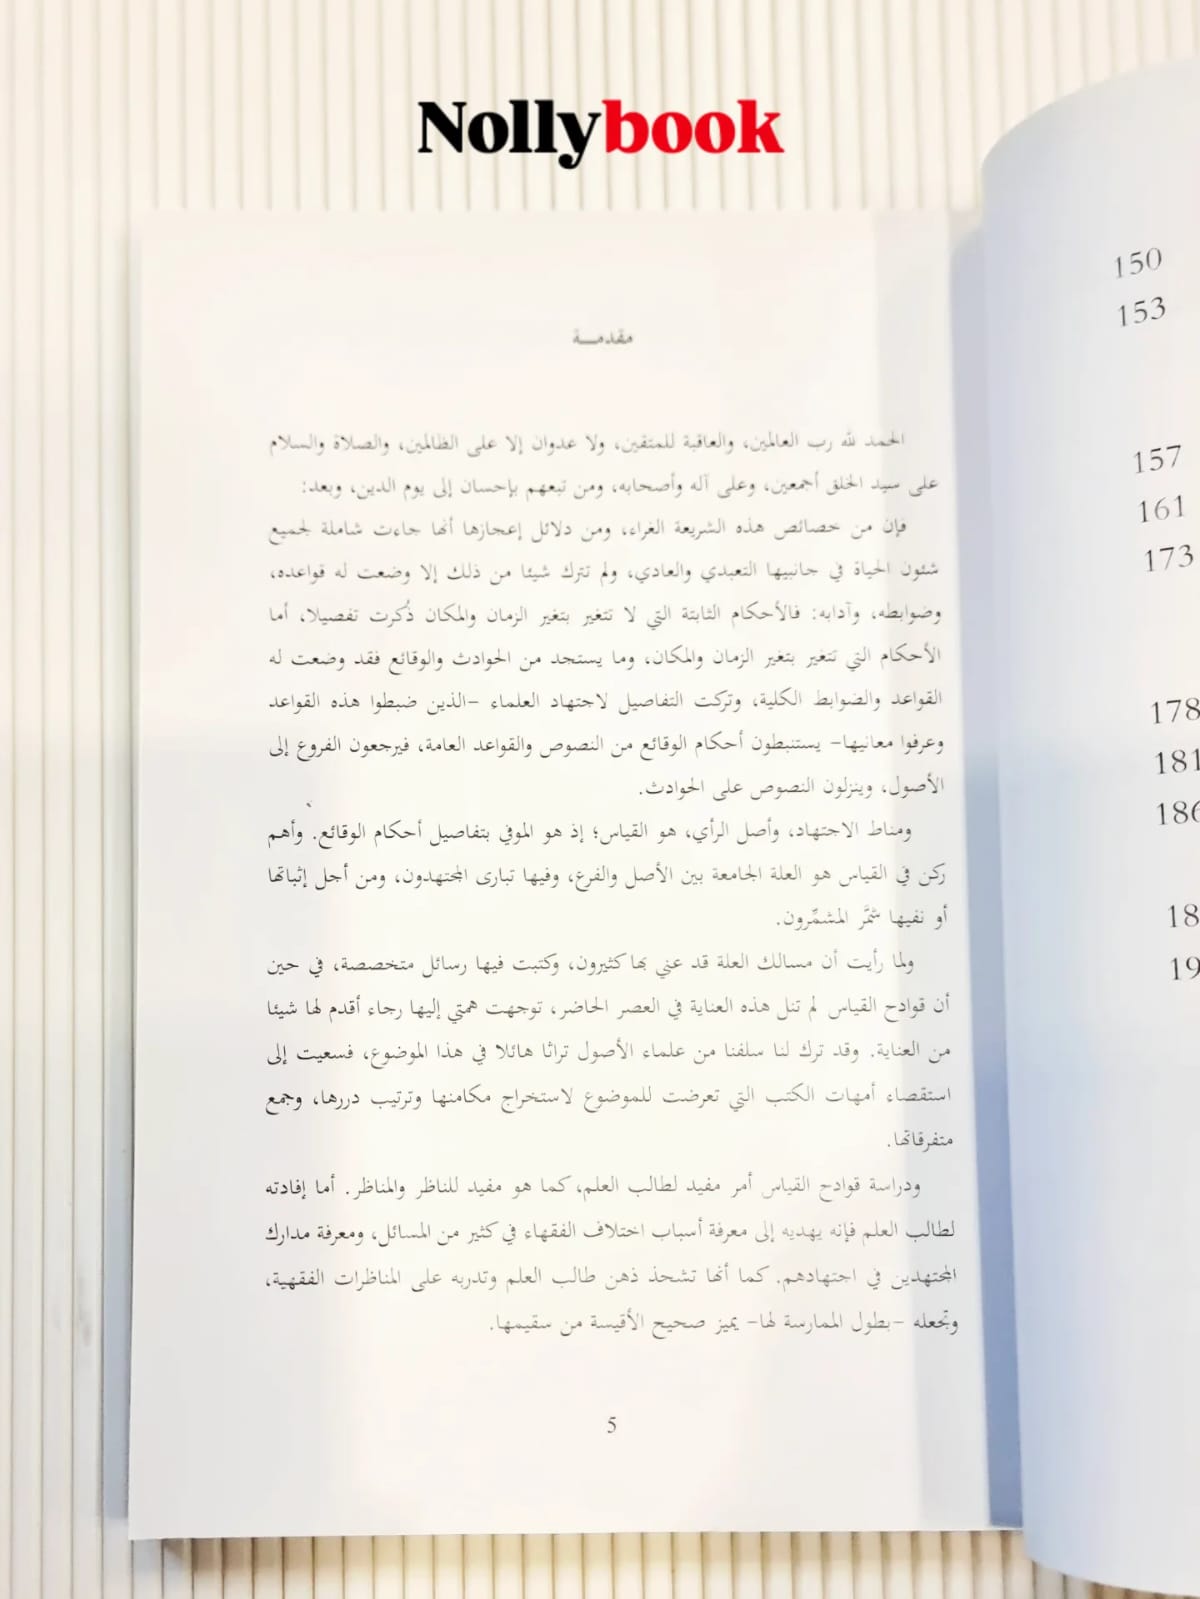 Nollybook
مقدمـــة
الحمد لله رب العالمين، والعاقبة للمتقين، ولا عدوان إلا على الظالمين، والصلاة والسلام
على سيد الخلق أجمعين، وعلى آله وأصحابه، ومن تبعهم بإحسان إلى يوم الدين، وبعد:
فإن من خصائص هذه الشريعة الغراء، ومن دلائل إعجازها أنها جاءت شاملة لجميع
شئون الحياة في جانبيها التعبدي والعادي، ولم تترك شيئا من ذلك إلا وضعت له قواعده،
وضوابطه، وآدابه: فالأحكام الثابتة التي لا تتغير بتغير الزمان والمكان ذُكرت تفصيلا، أما
الأحكام التي تتغير بتغير الزمان والمكان، وما يستجد من الحوادث والوقائع فقد وضعت له
القواعد والضوابط الكلية، وتركت التفاصيل لاجتهاد العلماء -الذين ضبطوا هذه القواعد
وعرفوا معانيها- يستنبطون أحكام الوقائع من النصوص والقواعد العامة، فيرجعون الفروع إلى
الأصول، وينزلون النصوص على الحوادث.
ومناط الاجتهاد، وأصل الرأي، هو القياس؛ إذ هو الموفي بتفاصيل أحكام الوقائع. وأهم
ركن في القياس هو العلة الجامعة بين الأصل والفرع، وفيها تبارى المجتهدون، ومن أجل إثباتها
أو نفيها شمَّر المشمِّرون.
ولما رأيت أن مسالك العلة قد عني بها كثيرون، وكتبت فيها رسائل متخصصة، في حين
أن قوادح القياس لم تنل هذه العناية في العصر الحاضر، توجهت همتي إليها رجاء أقدم لها شيئا
من العناية. وقد ترك لنا سلفنا من علماء الأصول تراثا هائلا في هذا الموضوع، فسعيت إلى
استقصاء أمهات الكتب التي تعرضت للموضوع لاستخراج مكامنها وترتيب دررها، وجمع
متفرقاتها.
ودراسة قوادح القياس أمر مفيد لطالب العلم، كما هو مفيد للناظر والمناظر. أما إفادته
لطالب العلم فإنه يهديه إلى معرفة أسباب اختلاف الفقهاء في كثير من المسائل، ومعرفة مدارك
المجتهدين في اجتهادهم. كما أنها تشحذ ذهن طالب العلم وتدربه على المناظرات الفقهية،
وتجعله -بطول الممارسة لها- يميز صحيح الأقيسة من سقيمها.
5
150
153
157
161
173
178
181
186
18
19